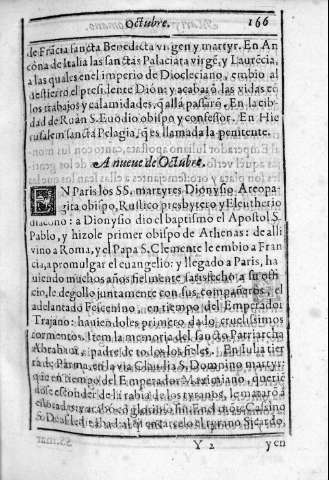 Octubre. 166
de Frãcia sancta Benedicta virgen y martyr. En An
cona de Italia las sanctas Palaciata virgẽ, y Laurecia,
a las quales en el imperio de Diocleciano, embio al
destierro el presidente Dion: y acabarõ las vidas cõ
los trabajos y calamidades, q̃ alla passarõ. En la cib
dad de Ruan S. Euodio obispo y confessor. En Hie
rusalem sancta Pelagia, q̃ es llamada la penitente.
A nueue de Octubre.
EN Paris los SS. martyres Dionysio Areopa
gita obispo, Rustico presbytero y Eleutherio
diacono: a Dionysio dio el baptismo el Apostol S.
Pablo, y hizole primer obispo de Athenas: de alli
vino a Roma, y el Papa S. Clemente le embio a Fran
cia, a promulgar el euangelio: y llegado a Paris, ha
uiendo muchos años fielmente satisfecho a su offi
cio, le degollo juntamente con sus compañeros, el
adelantado Fescenino, en tiempo del Emperador
Trajano: hauiendoles primero dado cruelissimos
tormentos. Item la memoria del sancto Patriarcha
Abraham, padre de todos los fieles. En Iulia tier
ra de Parma, en la via Claudia S. Domnino martyr:
que en tiempo del Emperador Maximiano, queriẽ
dose esconder de la rabia de los tyranos, le mataró a
y acabo gloriosamente en el mõte Cassino
S. el tyrano Sicardo,
Y 2 yen